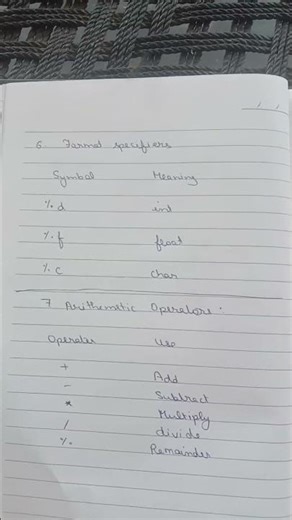 / /
6. Format specifiers
Symbol Meaning
%d int
%f float
%c char
7 Arithematic Operators :
Operator Use
+ Add
- Subtract
* Multiply
/ divide
% Remainder